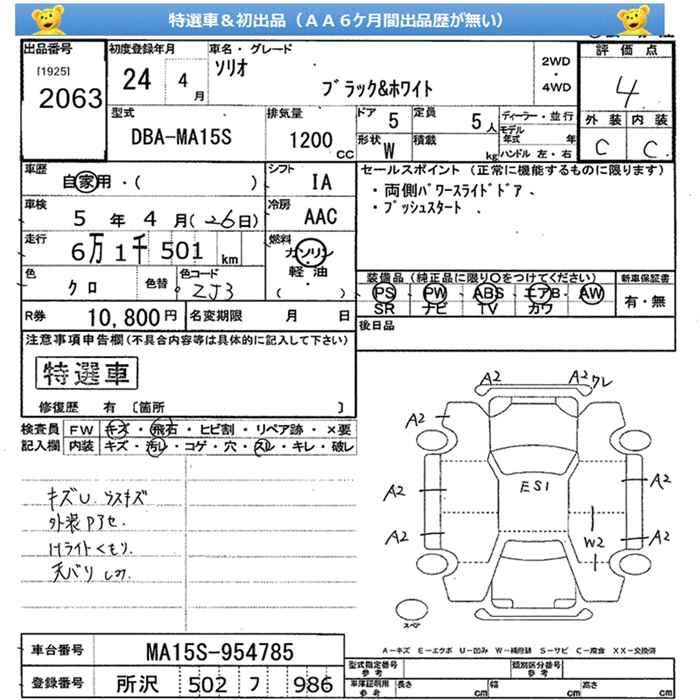 特選車＆初出品（ＡＡ６ケ月間出品歴が無い）
出品番号
[1925]
2063
初度登録年月
24 4
月
車名・グレード
ソリオ
ブラック&ホワイト
2WD
・
4WD
評価点
4
外装 内装
C C
型式
DBA-MA15S
排気量
1200
CC
ドア 5
定員 5 人
形状 W
積載 kg
ディーラー・並行
モデル年式 年
ハンドル 左・右
車歴
自家用・( )
シフト
IA
車検
5 年 4 月 (26日)
冷房
AAC
走行
6万1千501 km
燃料
ガソリン
・
軽油
( )
色
クロ
色替
色コード
ZJ3
セールスポイント（正常に機能するものに限ります）
・両側パワースライドドア.
・プッシュスタート.
装備品（純正品に限り○をつけてください）
PS PW ABS エアB AW
SR ナビ TV カワ
新車保証書
有・無
R券
10,800円
名変期限 月 日
後日品
注意事項申告欄(不具合内容等は具体的に記入して下さい)
特選車
修復歴 有 〔箇所 〕
検査員
記入欄
FW キズ・飛石・ヒビ割・リペア跡・×要
内装 キズ・汚レ・コゲ・穴・スレ・キレ・破レ
キズU ラスキズ
外装Pアセ.
Hライトくもり.
天バリしみ.
A2 A2 ワレ
A2
A2 E51 A2
A2 W2 A2
スペア
A−キズ E−エクボ U−凹み W−補修跡 S−サビ C−腐食 XX−交換済
車台番号
MA15S-954785
登録番号
所沢 502 フ 986
型式指定番号
参考
類別区分番号
参考
車庫証明用
参考
長さ cm
幅 cm
高さ cm